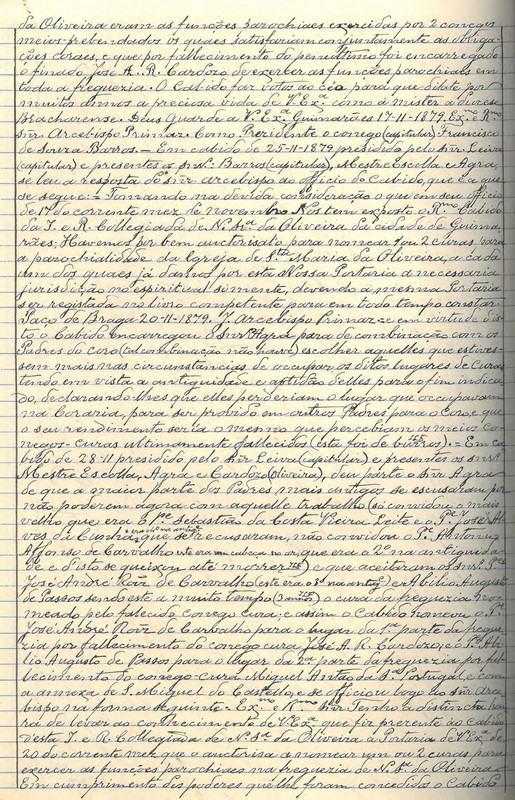 da Oliveira eram as funcções parochiaes exercidas por 2 conegos
meios-prebendados os quaes satisfariam conjuntamente as obriga-
ções coraes, e que por fallecimento do penultimo foi encarregado
o finado José A. R. Cardozo de exercer as funcções parochiaes em
toda a freguezia. O Cabido faz votos ao céo para que dilate por
muitos annos a preciosa vida de V. Exª como á mister á diocese
Bracharense. Deus Guarde a V. Exª Guimarães 17-11-1879. Exmo e Rmo
Snr. Arcebispo Primaz. Como Prezidente o conego (capitular) Francisco
de Souza Barros. = Em cabido de 25-11-1879 presidido pelo snr. Leiva
(capitular) e presentes os snrs. Barros (capitular), Mestre Escolla e Agra,
se leu a resposta do snr arcebispo ao officio do Cabido, que é a que
se segue: = Tomando na devida consideração o que em seu officio
de 17 do corrente mez de novembro Nos tem exposto o Rmo Cabido
da I. e R. Collegiada de N. Srª da Oliveira da cidade de Guima-
rães; Havemos por bem auctorisal-o para nomear 1 ou 2 curas para
a parochialidade da Igreja de Sta Maria da Oliveira, a cada
um dos quaes já damos por esta Nossa Portaria a necessaria
jurisdicção no espiritual sómente, devendo a mesma Portaria
ser registada no livro competente para em todo tempo constar.
Paço de Braga 20-11-1879. J. Arcebispo Primaz = e em virtude dis-
to o Cabido encarregou o snr Agra para de combinação com os
Padres do coro (tal combinação não houve) escolher aquelles que estives-
sem mais nas circumstancias de occupar os ditos lugares de curas
tendo em vista a antiguidade e aptidão delles para o fim indica-
do, declarando-lhes que elles perderiam o lugar que occupavam
na Coraria, para ser provido em outros Padres para o Coro, e que
o seu rendimento seria o mesmo que percebiam os meios Co-
negos-curas ultimamente fallecidos (esta foi de burros). = Em ca-
bido de 28-11 presidido pelo snr Leiva (capitular) e presentes os snrs
Mestre Escolla, Agra e Cardozo (Oliveira), deu parte o snr Agra
de que a maior parte dos Padres mais antigos se escusaram por
não poderem agora com aquelle trabalho (só convidou o mais
velho que era o Pe Sebastião da Costa Vieira Leite e o Pe José Al-
ves da Cunha, que se recusaram, não convidou o Pe Antonio
Affonso de Carvalho que era o 2º na antiguida-
de e d'isto se queixou até morrer) e que aceitaram os snrs Pes
José André Roiz de Carvalho (este era o 8º na antigª) e Abilio Augusto
de Passos sendo este a muito tempo (3 annos) o cura da freguezia no-
meado pelo falecido conego cura; e assim o Cabido nomeou o Pe
José André Roiz de Carvalho para o lugar da 1ª parte da fregue-
zia por fallecimento do conego cura José A. R. Cardozo, e o Pe Abi-
lio Augusto de Passos para o lugar da 2ª parte da freguezia por fal-
lecimento do conego-cura Miguel Antão da Sª Portugal, e com
a annexa de S. Miguel do Castello, e se officiou logo ao snr Arce-
bispo na forma seguinte. = Exmo e Rmo Snr. Tenho a distincta hon-
ra de levar ao conhecimento de V. Exª que fiz prezente ao Cabido
d'esta I. e R. Collegiada de N. Srª da Oliveira a Portaria de V. Exª de
20 do corrente mez que o auctorisa a nomear um ou 2 curas para
exercer as funcções parochiaes na freguezia de N. Srª da Oliveira =
Em cumprimento dos poderes que lhe foram concedidos o Cabido